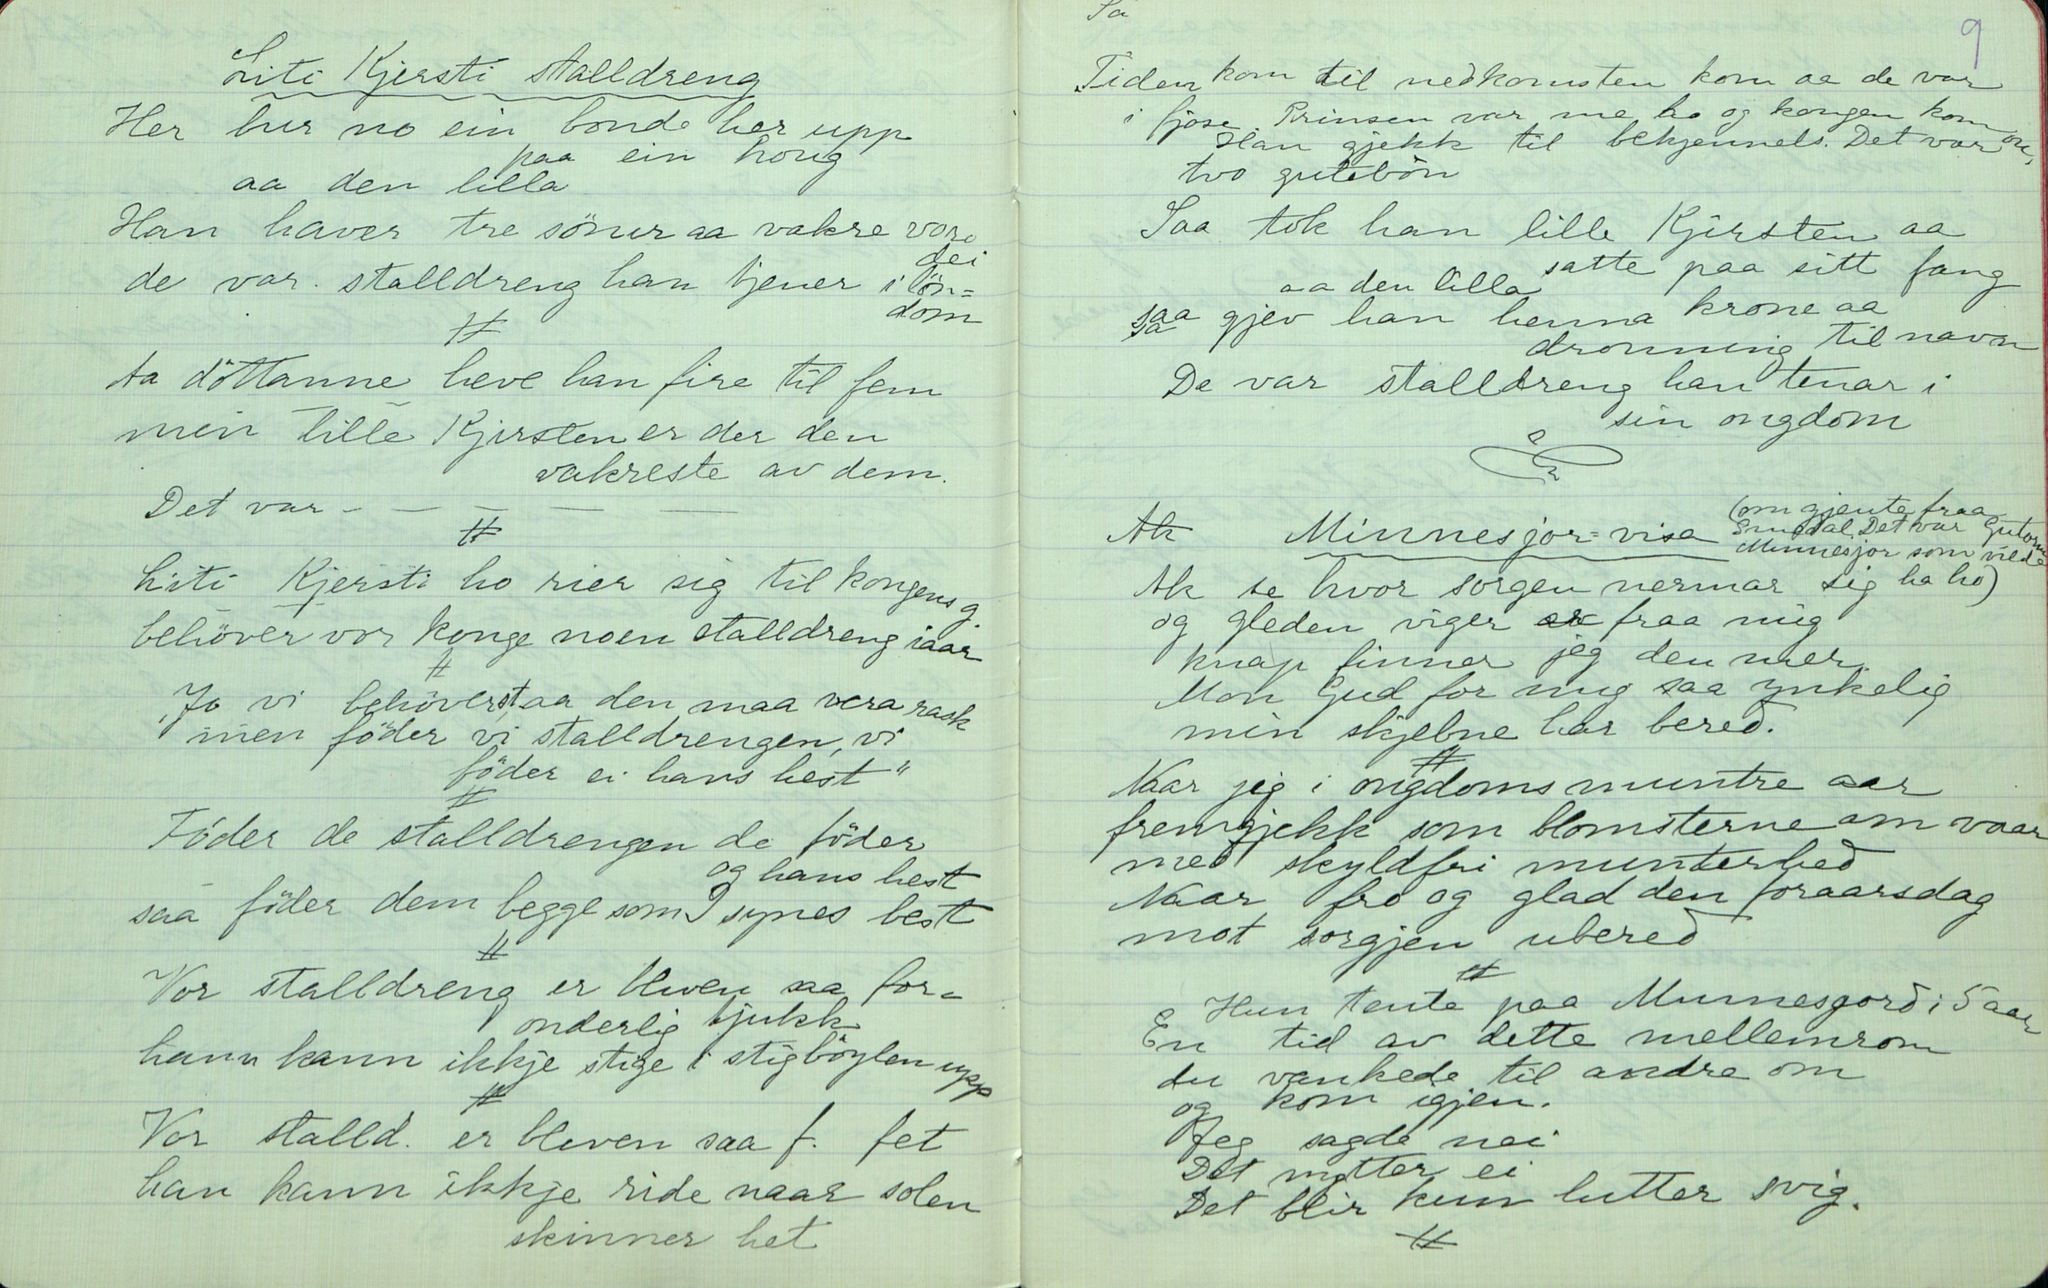 Liti Kjersti stalldreng
Her bur no ein bonde her upp
paa ein houg
aa den lilla
Han haver tre söner aa vakre vore
dei
de var stalldreng han tjener i lön=
dom
#
Aa döttanne heve han fire til fem
min lille Kjersten er der den
vakreste av dem.
Det var - — — — —
#
Liti Kjersti ho rier sig til kongens g
behöver vor konge noen stalldreng iaar
#
"Jo vi behöverst, aa den maa vera rask
men föder vi stalldrengen, vi
föder ei hans hest"
#
Föder de stalldrengen de föder
og hans hest
saa föder dem begge som I synes best
#
Vor stalldreng er bleven saa for=
onderlig tjukk
hann kann ikkje stige i stigböylen upp
#
Vor stalld. er bleven saa f. fet
han kann ikkje ride naar solen
skinner het
Sa
9
Tiden kom til nedkomsten kom aa de var
i fjose Prinsen var me ho og kongen kom
Han gjekk til bekjennels. Det var
tvo gutebön
Saa tok han lille Kjersten aa
satte paa sitt fang
aa den lilla
saa gjev han henna krone aa
dronning til navn
De var stalldreng han tenar i
sin ongdom
Ak Minnesjor=visa (om gjente fraa
Det var Gutorm
Minnesjor som vilde
ha ho)
Ak se hvor sorgen nermar sig
og gleden viger er fraa mig
knap finner jeg den mer.
Mon Gud for mig saa ynkelig
min skjebne har bered.
#
Naar jeg i ongdoms muntre aar
fremgjekk som blomsterne om vaar
med skyldfri munterhed
Naar fro og glad den foraarsdag
mot sorgjen ubered
#
Hun tente paa Munnesjord i 5 aar
En tid av dette mellemrom
du vankede til andre om
og kom igjen.
Jeg sagde nei
Det nytter ei
Det blir kun lutter svig.
#